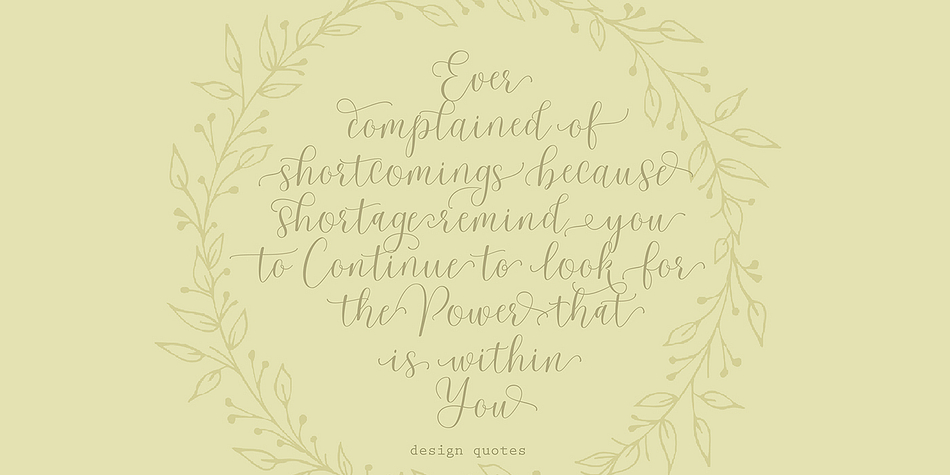 Ever
complained of
shortcomings because
shortage remind you
to Continue to look for
the Power that
is within
You
design quotes